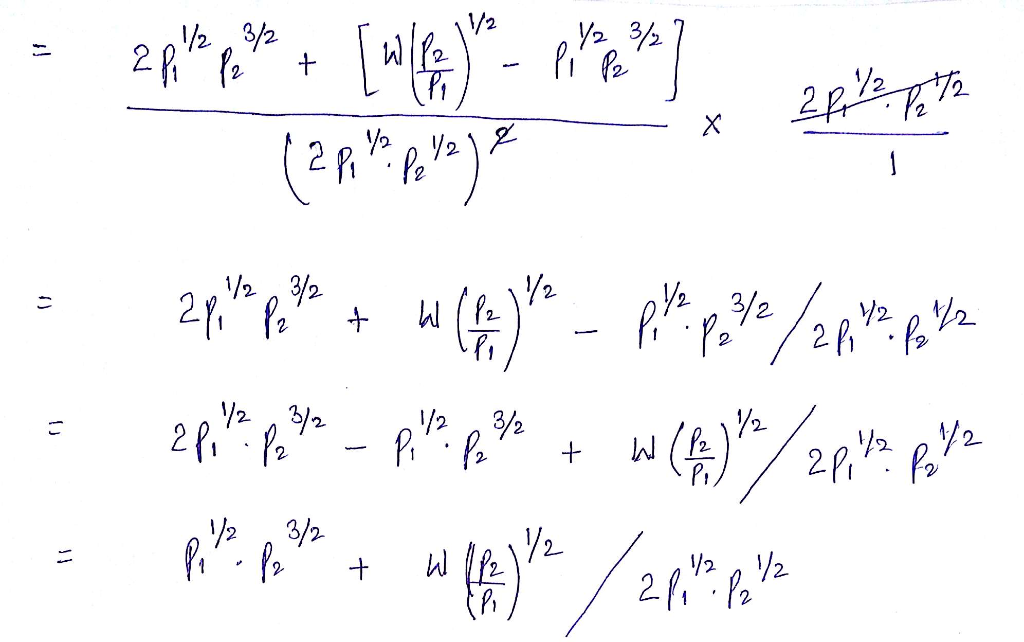 = 2 p₁^1/2 p₂^3/2 + [ W (p₂/p₁)^1/2 - p₁^1/2 p₂^3/2 ] / (2 p₁^1/2 . p₂^1/2)^2 x 2 p₁^1/2 . p₂^1/2 / 1
= 2 p₁^1/2 p₂^3/2 + W (p₂/p₁)^1/2 - p₁^1/2 . p₂^3/2 / 2 p₁^1/2 . p₂^1/2
= 2 p₁^1/2 . p₂^3/2 - p₁^1/2 . p₂^3/2 + W (p₂/p₁)^1/2 / 2 p₁^1/2 . p₂^1/2
= p₁^1/2 . p₂^3/2 + W (p₂/p₁)^1/2 / 2 p₁^1/2 . p₂^1/2